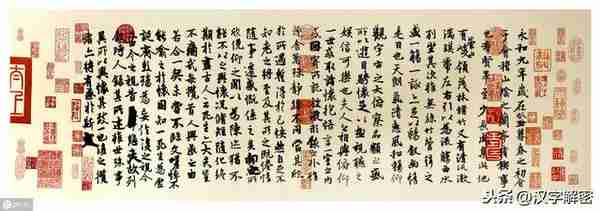 永和九年歲在癸丑暮春之初會
于會稽山陰之蘭亭脩禊事
也羣賢畢至少長咸集此地
有崇山峻領茂林脩竹又有清流激
湍暎帶左右引以為流觴曲水
列坐其次雖無絲竹管弦之
盛一觴一詠亦足以暢敘幽情
是日也天朗氣清惠風和暢仰
觀宇宙之大俯察品類之盛
所以遊目騁懷足以極視聽之
娛信可樂也夫人之相與俯仰
一世或取諸懷抱悟言一室之內
或因寄所託放浪形骸之外雖
趣舍萬殊靜躁不同當其欣
於所遇蹔得於己怏然自足不
知老之將至及其所之既惓情
隨事遷感慨係之矣向之所
欣俛仰之閒以為陳迹猶不
能不以之興懷況脩短隨化終
期於盡古人云死生亦大矣豈
不痛哉每攬昔人興感之由
若合一契未嘗不臨文嗟悼不
能喻之於懷固知一死生為虛
誕齊彭殤為妄作後之視今
亦由今之視昔悲夫故列
敘時人錄其所述雖世殊事
異所以興懷其致一也後之攬
者亦將有感於斯文
头条 @汉字解密